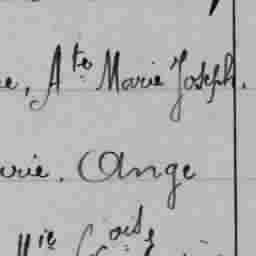 e, Ate Marie Joseph.
urie. Ange